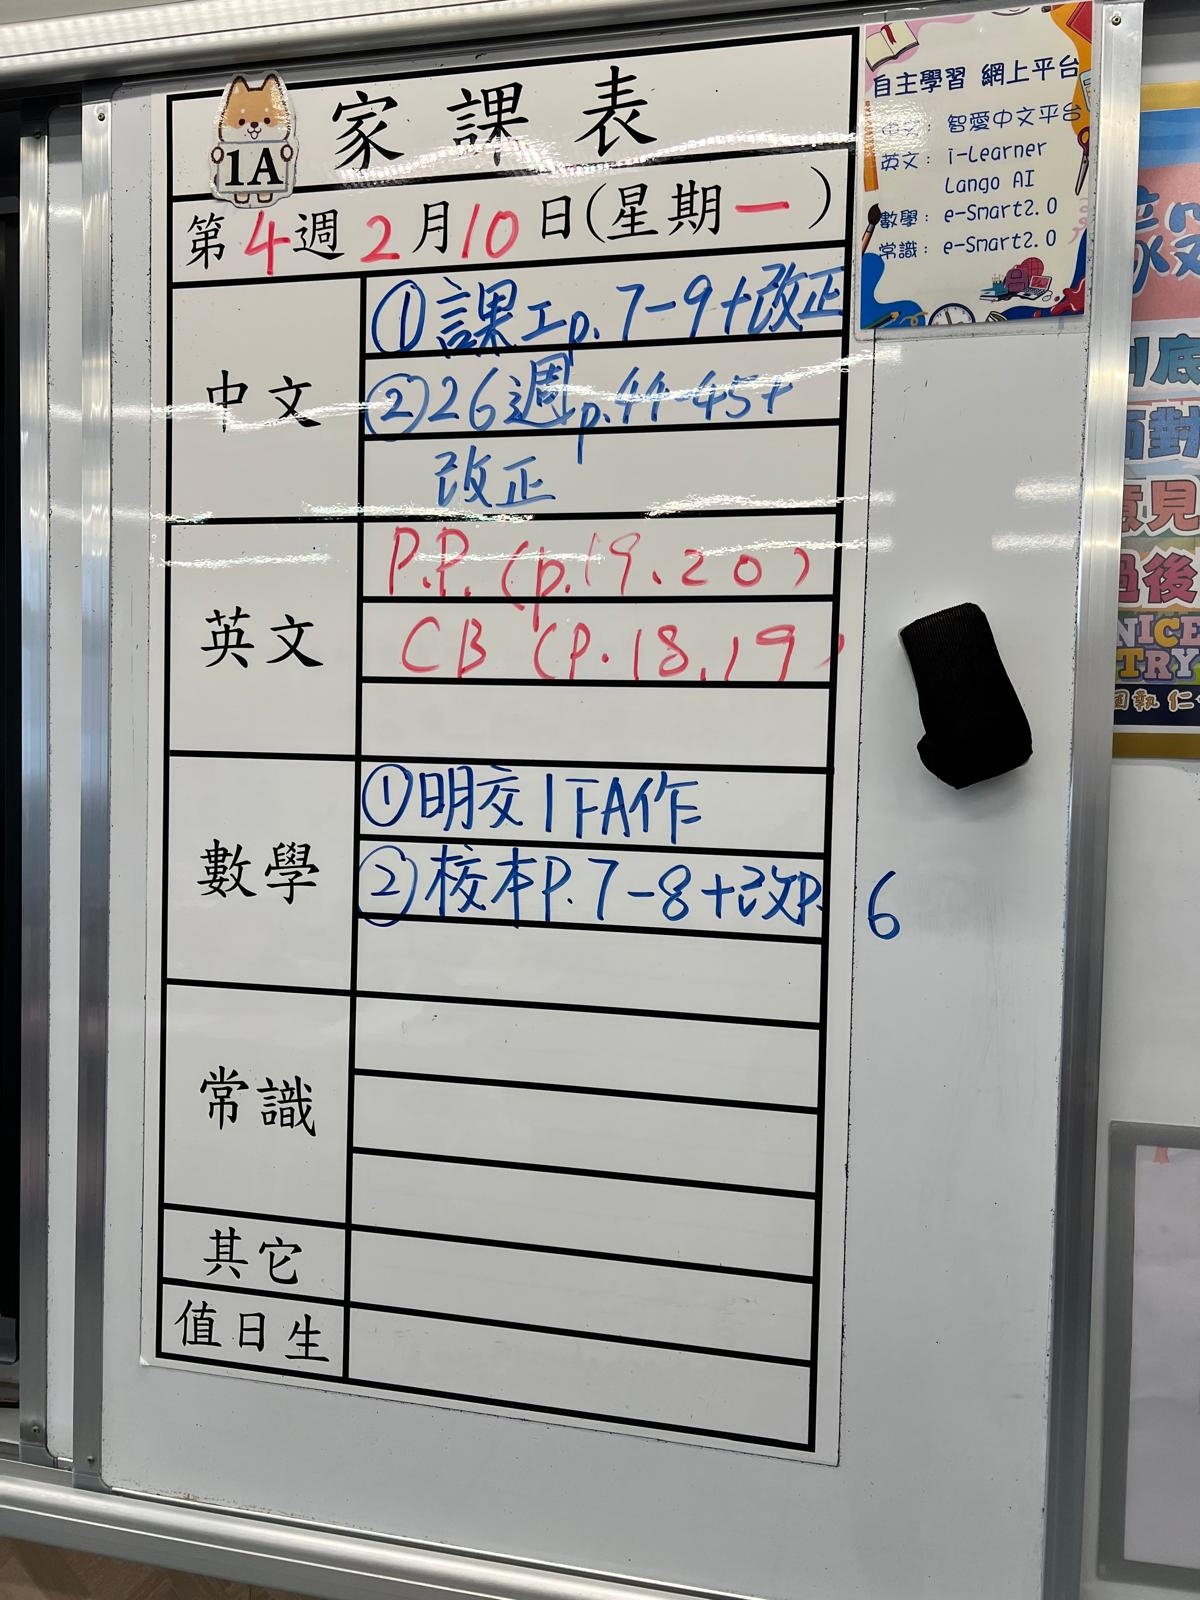 1A
家課表
第4週2月10日(星期一)
中文
①課工p.7-9+改正
②26週p.44-45+
改正
英文
P.P. (p.19.20)
CB (P.18,19)
數學
①明交1下A作
②校本P.7-8+改P.6
常識
其它
值日生
自主學習 網上平台
中文: 智愛中文平台
英文: i-Learner
Lango AI
數學: e-Smart2.0
常識: e-Smart2.0
到底
面對
意見
過後
NICE
TRY